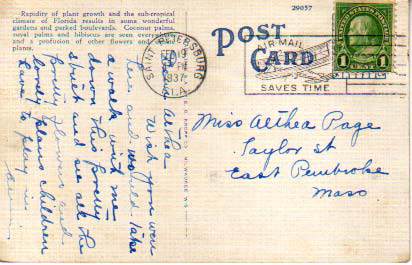 Rapidity of plant growth and the sub-tropical
climate of Florida results in some wonderful
gardens and parked boulevards. Coconut palms,
royal palms and hibiscus are seen everywhere
and a profusion of other flowers and
plants.
29057
POST
CARD
SAINT PETERSBURG
PM
1937
FLA.
AIR MAIL
SAVES TIME
1 1
Dear Althea
Wish you were
here and would take
a walk with me
down this pretty
street and see all the
pretty flowers and
lovely places children
have to play in
Miss Althea Page
Taylor St
East Pembroke
Mass